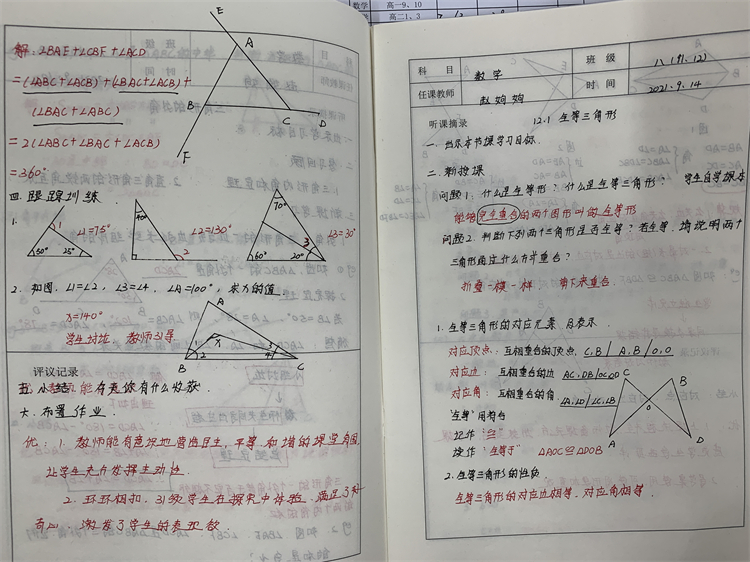 数学
高一9、10
高二1、3
解：∠BAE+∠CBF+∠ACD
=(∠ABC+∠ACB)+(∠BAC+∠ACB)+
(∠BAC+∠ABC)
=2(∠ABC+∠BAC+∠ACB)
=360°
E
A
B
C
D
F
四．跟踪训练．
1.
1
∠1=75°
50°
25°
40°
∠2=130°
2
70°
∠3=30°
3
60°
20°
2．如图，∠1=∠2，∠3=∠4，∠A=100°，求x的值．
x=140°
学生讨论 教师引导
A
B
C
1
2
x
3
4
评议记录
五．小结
你有什么收获．
六．布置作业．
优：1．教师能有意识地营造民主，平等和谐的课堂氛围
让学生充分发挥主动性．
2．环环相扣，引领学生在探究中体验，满足了好
奇心，激发了学生的表现欲．
科 目
数学
班 级
八（11、12）
任课教师
赵姁姁
时 间
2021.9.14
听课摘录
12.1 全等三角形
一．出示本节课学习目标．
二．新授课
问题1：什么是全等形？什么是全等三角形？ 学生自学课本
能够完全重合的两个图形叫做全等形
问题2．判断下列两个三角形是否全等？若全等，请说明两个
三角形通过什么方式重合？
折叠一模一样 剪下来重合．
1．全等三角形的对应元素，及表示
对应顶点：互相重合的顶点．C，B / A，B / O，O
对应边：互相重合的边 AC，DB/OC，OD
对应角：互相重合的角．∠A，∠D / ∠C，∠B
“全等”用符号
记作“≌”
读作：“全等于” △AOC≌△DOB
C
B
O
A
D
2．全等三角形的性质．
全等三角形的对应边相等．对应角相等．